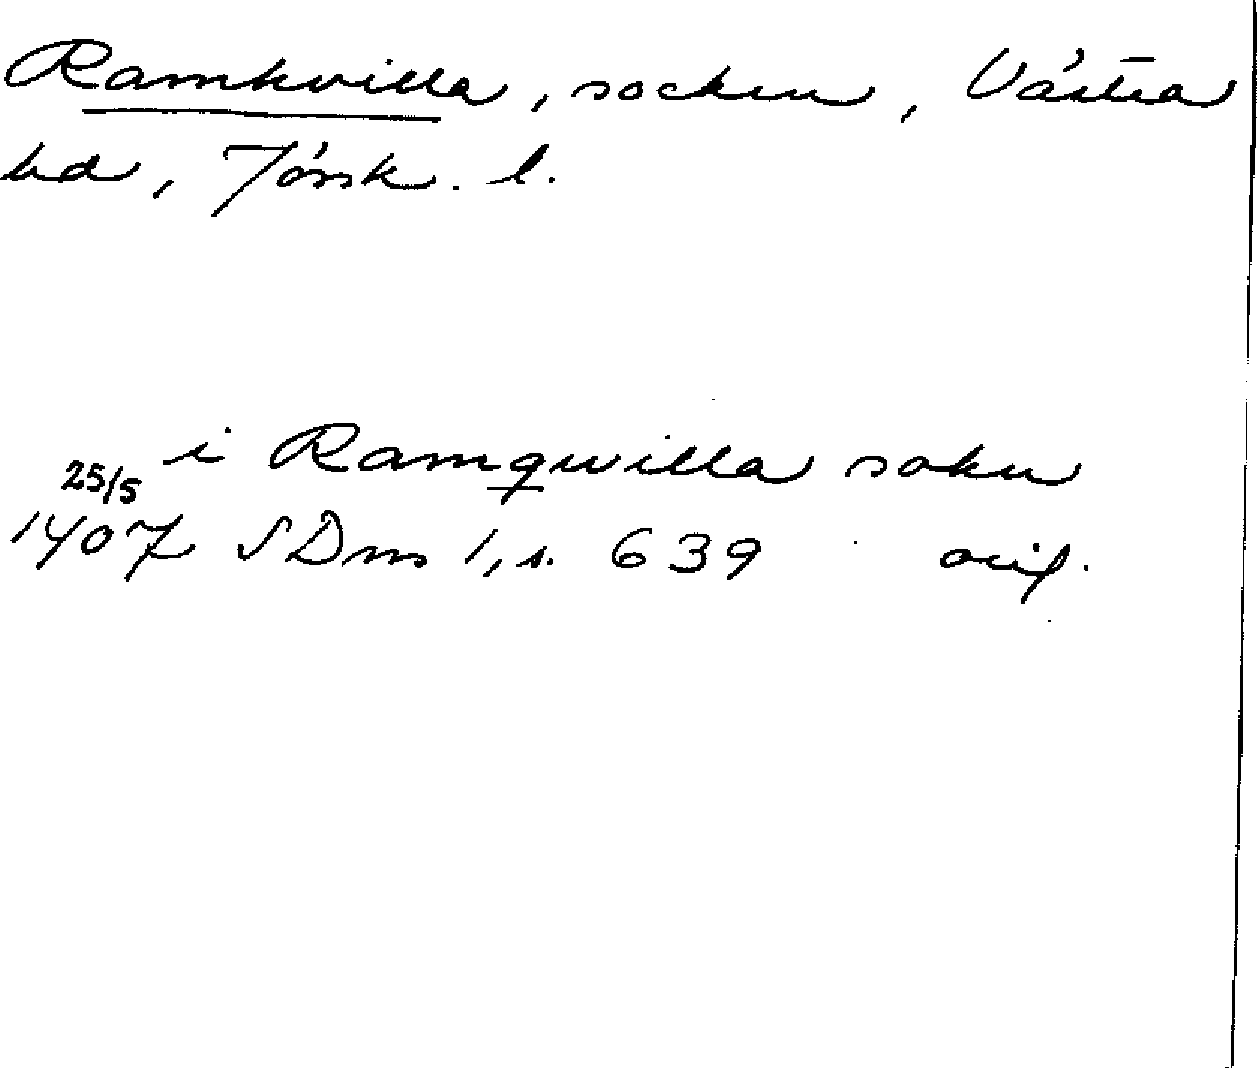 Ramkvilla, socken, Västra
hd, Jönk. l.
i Ramqwilla sokn
25/5
1407 SDns 1, s. 639 orig.